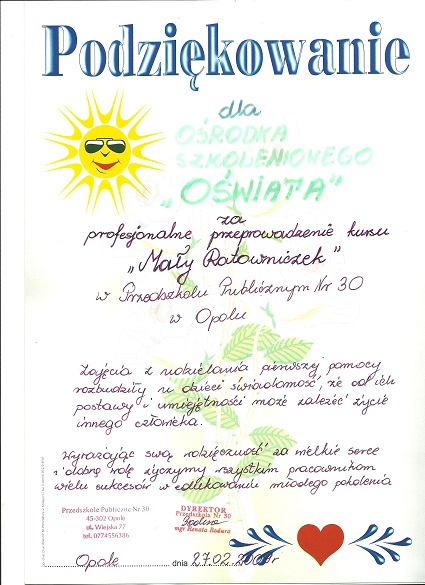 Podziękowanie
dla
OŚRODKA
SZKOLENIOWEGO
"OŚWIATA"
za
profesjonalne przeprowadzenie kursu
„Mały Ratowniczek"
w Przedszkolu Publicznym Nr 30
w Opolu
Zajęcia z udzielania pierwszej pomocy
rozbudziły w dzieci świadomość, że od ich
postawy i umiejętności może zależeć życie
innego człowieka.
Wyrażając swą wdzięczność za wielkie serce
i dobrą wolę życzymy wszystkim pracownikom
wielu sukcesów w edukowaniu młodego pokolenia
Przedszkole Publiczne Nr 30
45-302 Opole
ul. Wiejska 77
tel. 0774556386
DYREKTOR
Przedszkola Nr 30
mgr Renata
Opole dnia 27.02.2009r